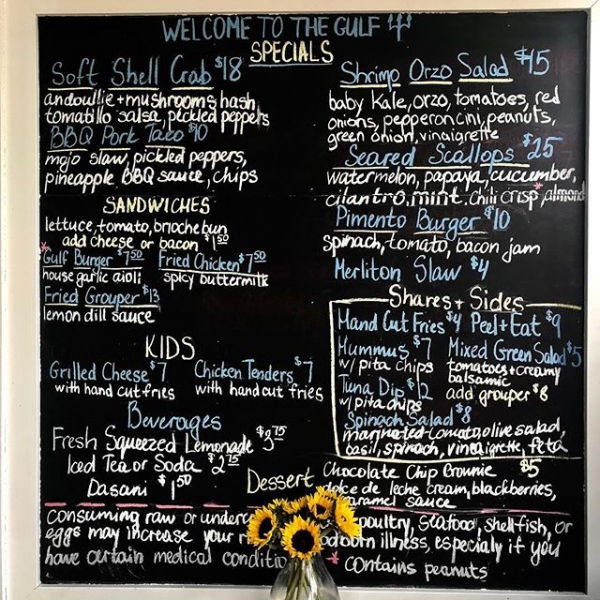 WELCOME TO THE GULF
SPECIALS
Soft Shell Crab $18
andouille + mushrooms hash
tomatillo salsa, pickled peppers
BBQ Pork Taco $10
mojo slaw, pickled peppers,
pineapple BBQ sauce, chips
SANDWICHES
lettuce, tomato, brioche bun
add cheese or bacon $1.50
*Gulf Burger $7.50 Fried Chicken $7.50
house garlic aioli spicy buttermilk
Fried Grouper $13
lemon dill sauce
KIDS
Grilled Cheese $7 Chicken Tenders $7
with hand cut fries with hand cut fries
Beverages
Fresh Squeezed Lemonade $3.75
Iced Tea or Soda $2.75
Dasani $1.50
Shrimp Orzo Salad $15
baby kale, orzo, tomatoes, red
onions, pepperoncini, peanuts,
green onion, vinaigrette
Seared Scallops $25
watermelon, papaya, cucumber,
cilantro, mint, chili crisp* almond
Pimento Burger $10
spinach, tomato, bacon jam
Merliton Slaw $4
Shares + Sides
Hand Cut Fries $4 Peel + Eat $9
Hummus $7 Mixed Green Salad $5
w/ pita chips tomatoes + creamy
balsamic
Tuna Dip $12 add grouper $8
w/ pita chips
Spinach Salad $8
marinated tomato, olive salad,
basil, spinach, vinaigrette, feta
Dessert Chocolate Chip Brownie $5
dolce de leche cream, blackberries,
caramel sauce
consuming raw or underc poultry, seafood, shellfish, or
eggs may increase your ri odborn illness, especialy if you
have certain medical conditio * contains peanuts